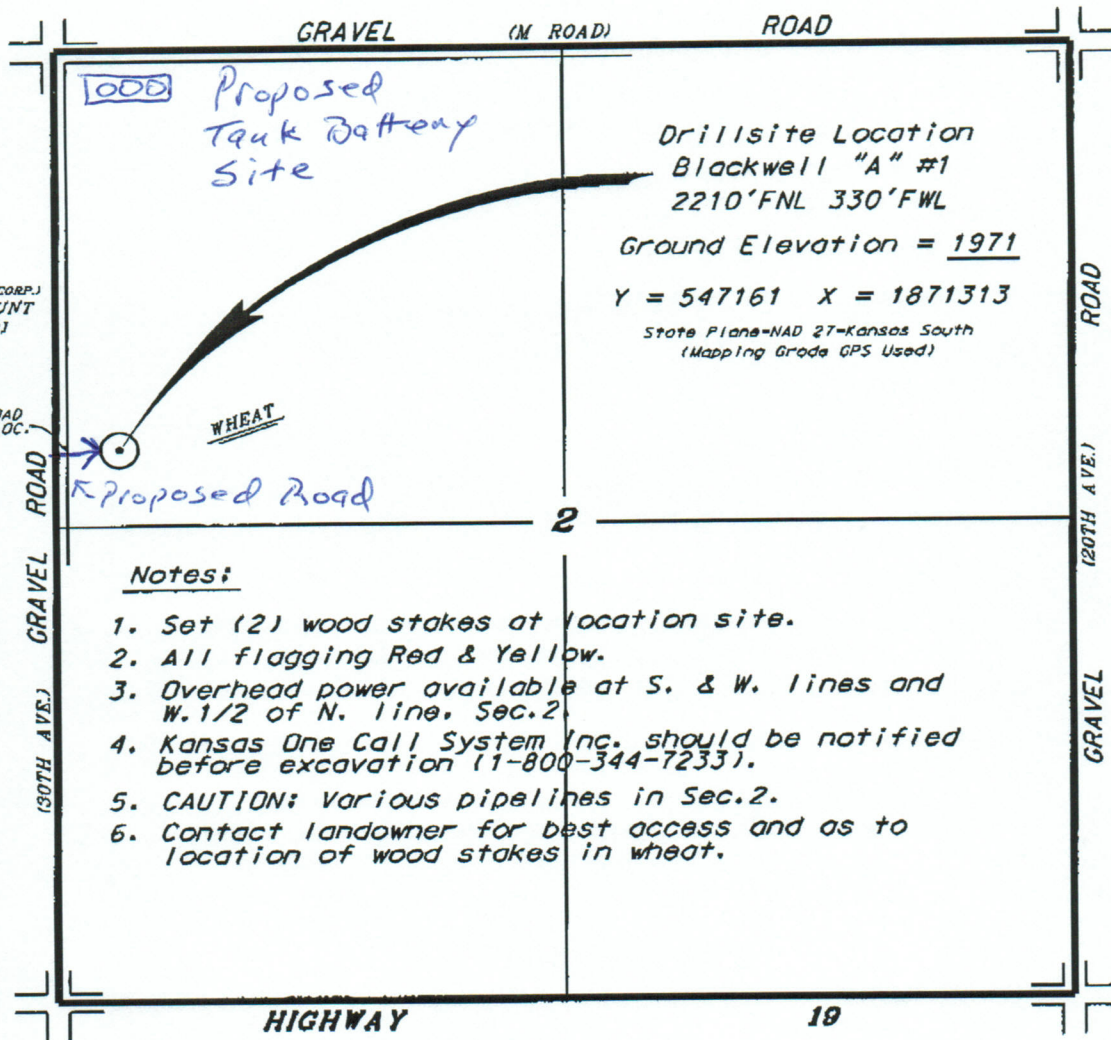 GRAVEL (M ROAD) ROAD
000 Proposed
Tank Battery
Site
Drillsite Location
Blackwell "A" #1
2210'FNL 330'FWL
Ground Elevation = 1971
Y = 547161 X = 1871313
State Plane-NAD 27-Kansas South
(Mapping Grade GPS Used)
CORP.)
WHEAT
Proposed Road
2
GRAVEL ROAD
(30TH AVE.)
ROAD
(20TH AVE.)
GRAVEL
Notes:
1. Set (2) wood stakes at location site.
2. All flagging Red & Yellow.
3. Overhead power available at S. & W. lines and
W.1/2 of N. line. Sec.2.
4. Kansas One Call System Inc. should be notified
before excavation (1-800-344-7233).
5. CAUTION: Various pipelines in Sec.2.
6. Contact landowner for best access and as to
location of wood stakes in wheat.
HIGHWAY 19